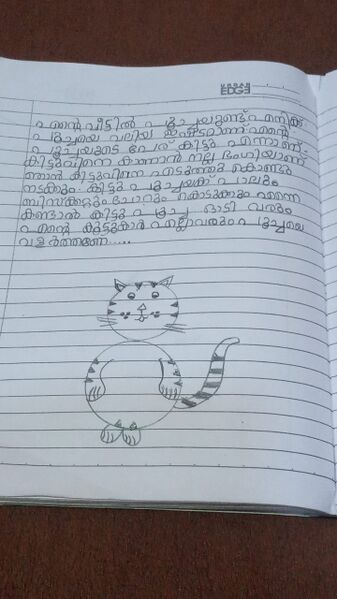 URBAN
EDGE
എന്റെ വീട്ടിൽ പൂച്ചയുണ്ട് എനിക്ക്
പൂച്ചയെ വലിയ ഇഷ്ടമാണ് എന്റെ
പൂച്ചയുടെ പേര് കിട്ടു എന്നാണ്.
കിട്ടുവിനെ കാണാൻ നല്ല ഭംഗിയാണ്
ഞാൻ കിട്ടുവിനെ എടുത്തു കൊണ്ടു
നടക്കും. കിട്ടു പൂച്ചയ്ക്ക് പാലും
ബിസ്ക്കറ്റും ചോറും കൊടുക്കും എന്നെ
കണ്ടാൽ കിട്ടു പൂച്ച ഓടി വരും
എന്റെ കൂട്ടുകാർ എല്ലാവരും പൂച്ചയെ
വളർത്തണേ.....